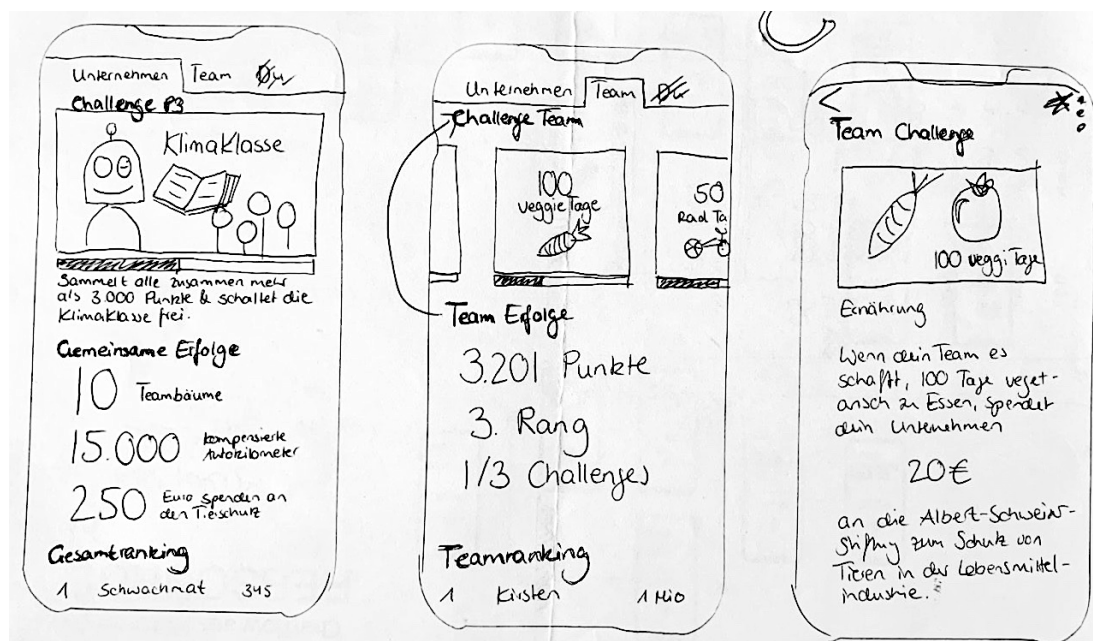 Unternehmen Team Du
Challenge P3
KlimaKlasse
Sammelt alle zusammen mehr
als 3.000 Punkte & schaltet die
KlimaKlasse frei.
Gemeinsame Erfolge
10 Teambäume
15.000 kompensierte
Autokilometer
250 Euro spenden an
den Tierschutz
Gesamtranking
1 Schwachmat 345
Unternehmen Team Du
Challenge Team
100
veggie Tage
50
Rad Ta
Team Erfolge
3.201 Punkte
3. Rang
1/3 Challenges
Teamranking
1 Kirsten 1 Mio
Team Challenge
100 veggi Tage
Ernährung
Wenn dein Team es
schafft, 100 Tage veget-
arisch zu Essen, spendet
dein Unternehmen
20€
an die Albert-Schweizr-
Stiftung zum Schutz von
Tieren in der Lebensmittel-
industrie.